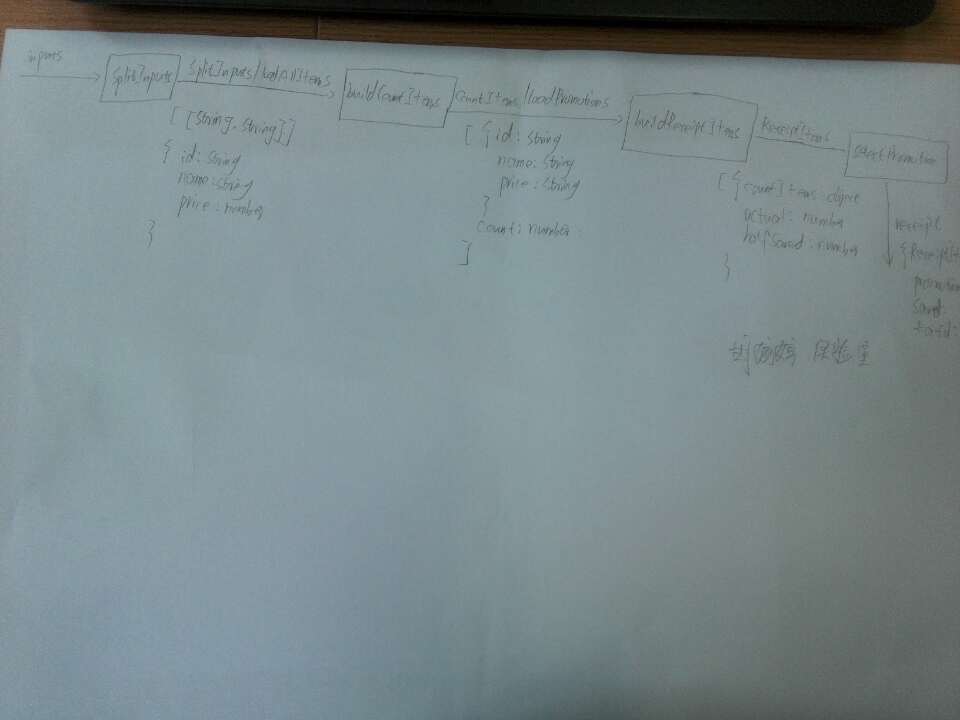 inputs
splitInputs
splitInputs/loadAllItems
[[string,string]]
{ id: string
name: string
price: number
}
buildCountItems
CountItems/loadPromotions
[{ id: string
name: string
price: string
}
count: number
]
buildReceiptItems
ReceiptItems
[{countItems: object
actual: number
halfSaved: number
}
selectPromotion
receipt
{ReceiptIte
promotion
saved
total: